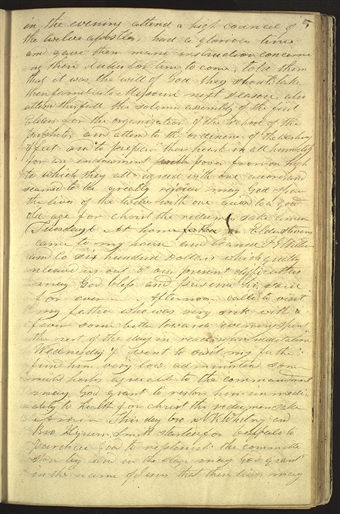 5
in the evening attend a high council of
the twelve apostles, had a glorious time
and gave them many instruction concern
ing their duties for time to come, told them
that it was the will of God they should take
their families to Missouri next season, also
attend this fall the solemn assembly of the first
Elders for the organization of the school of the
prophets, and attend to the ordinence of the washing
of feet and to prepare their hearts in all humility
for an endowment with power from on high
to which they all agreed with one accord and
seamed to be greatly rejoiced may God spare
the lives of the twelve with one accord to a good
old age for christ the redeemers sake amen
Tuesday 6 At home Elder Stevens
came to my house and loaned F G Williams
and Co six hundred Dollars which greatly
releaved us out of our present difficulties
may God bless and preserve his soul
for ever Afternoon called to visit
my father who was very sick with a
fever some better towards evening spent
the rest of the day in reading and meditation
Wednesday 7 went to visit my fath
find him very low administered some
mild herbs agreeable to the commandment
may God grant to restore him immedi
ately to health for christ the redeemers sake
Amen This day bro N K Whitney and
Bro Hyrum Smith started for Buffalo to
purchase good to replenish the committe
store by land in the stage may God grant
in the name of Jesus that their lives may